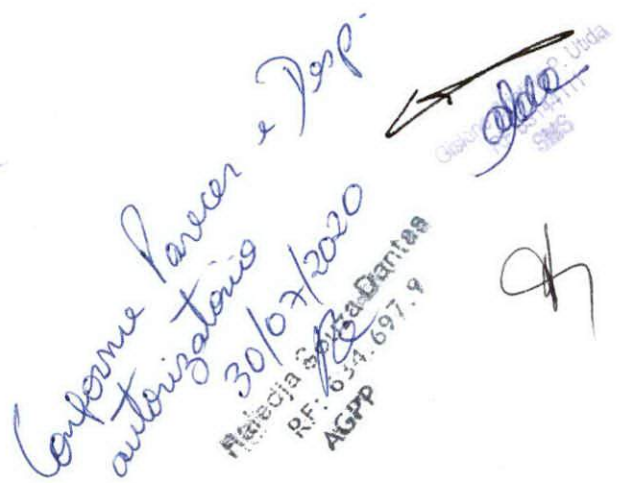 Conforme Parecer e Desp.
autorizatório
30/07/2020
Souza Dantas
RF: 634.697.9
AGPP
Utida
SMS